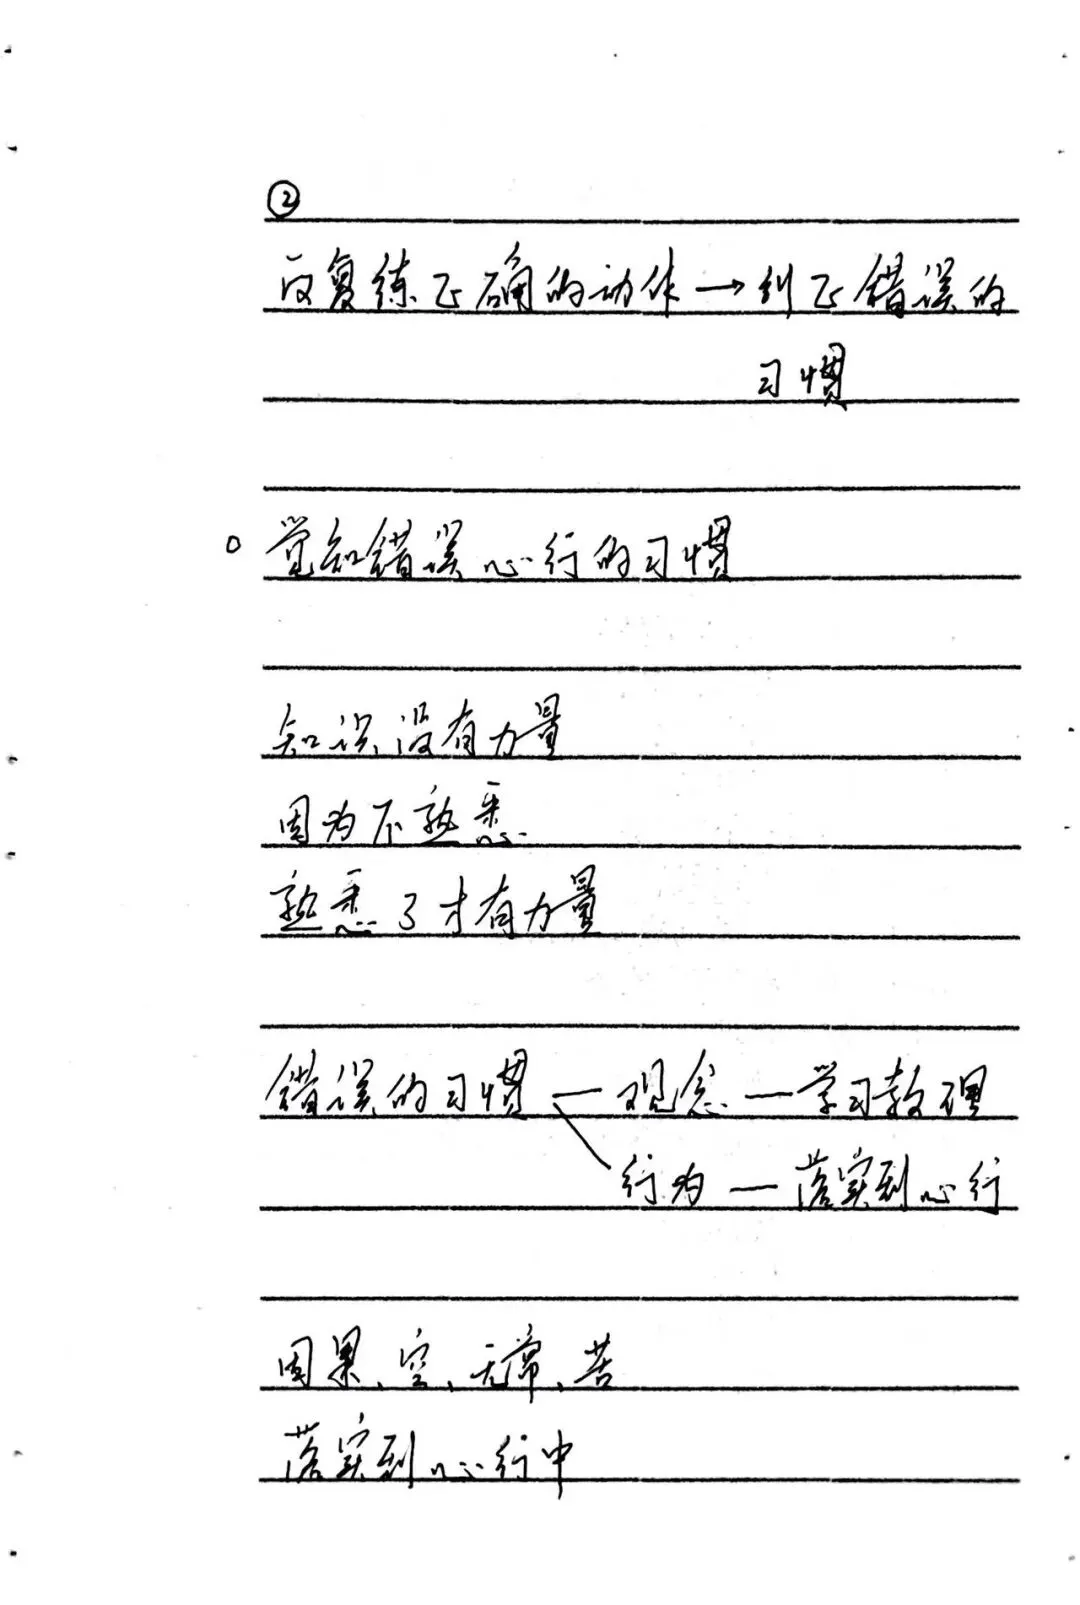 ②
反复练正确的动作→纠正错误的
习惯
○ 觉知错误心行的习惯
知识没有力量
因为不熟悉
熟悉了才有力量
错误的习惯 — 观念 — 学习教理
行为 — 落实到心行
因果、空、无常、苦
落实到心行中